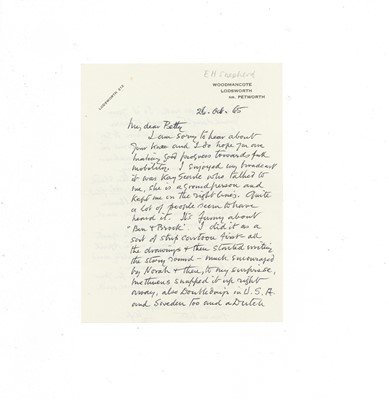 E H Shepherd
WOODMANCOTE
LODSWORTH
NR. PETWORTH
LODSWORTH
26. Oct. 65
My dear Betty
I am sorry to hear about
your knee and I do hope you are
making good progress towards full
mobility. I enjoyed my broadcast
it was Kay Searle who talked to
me, she is a grand person and
kept me in the right lines. Quite
a lot of people seem to have
heard it. It's funny about
"Ben & Brock". I did it as a
sort of strip cartoon first - all
the drawings & then started writing
the story round - much encouraged
by Norah & then, to my surprise,
Methuens snapped it up right
away, also Doubledays in U.S.A
and Sweden too and a Dutch